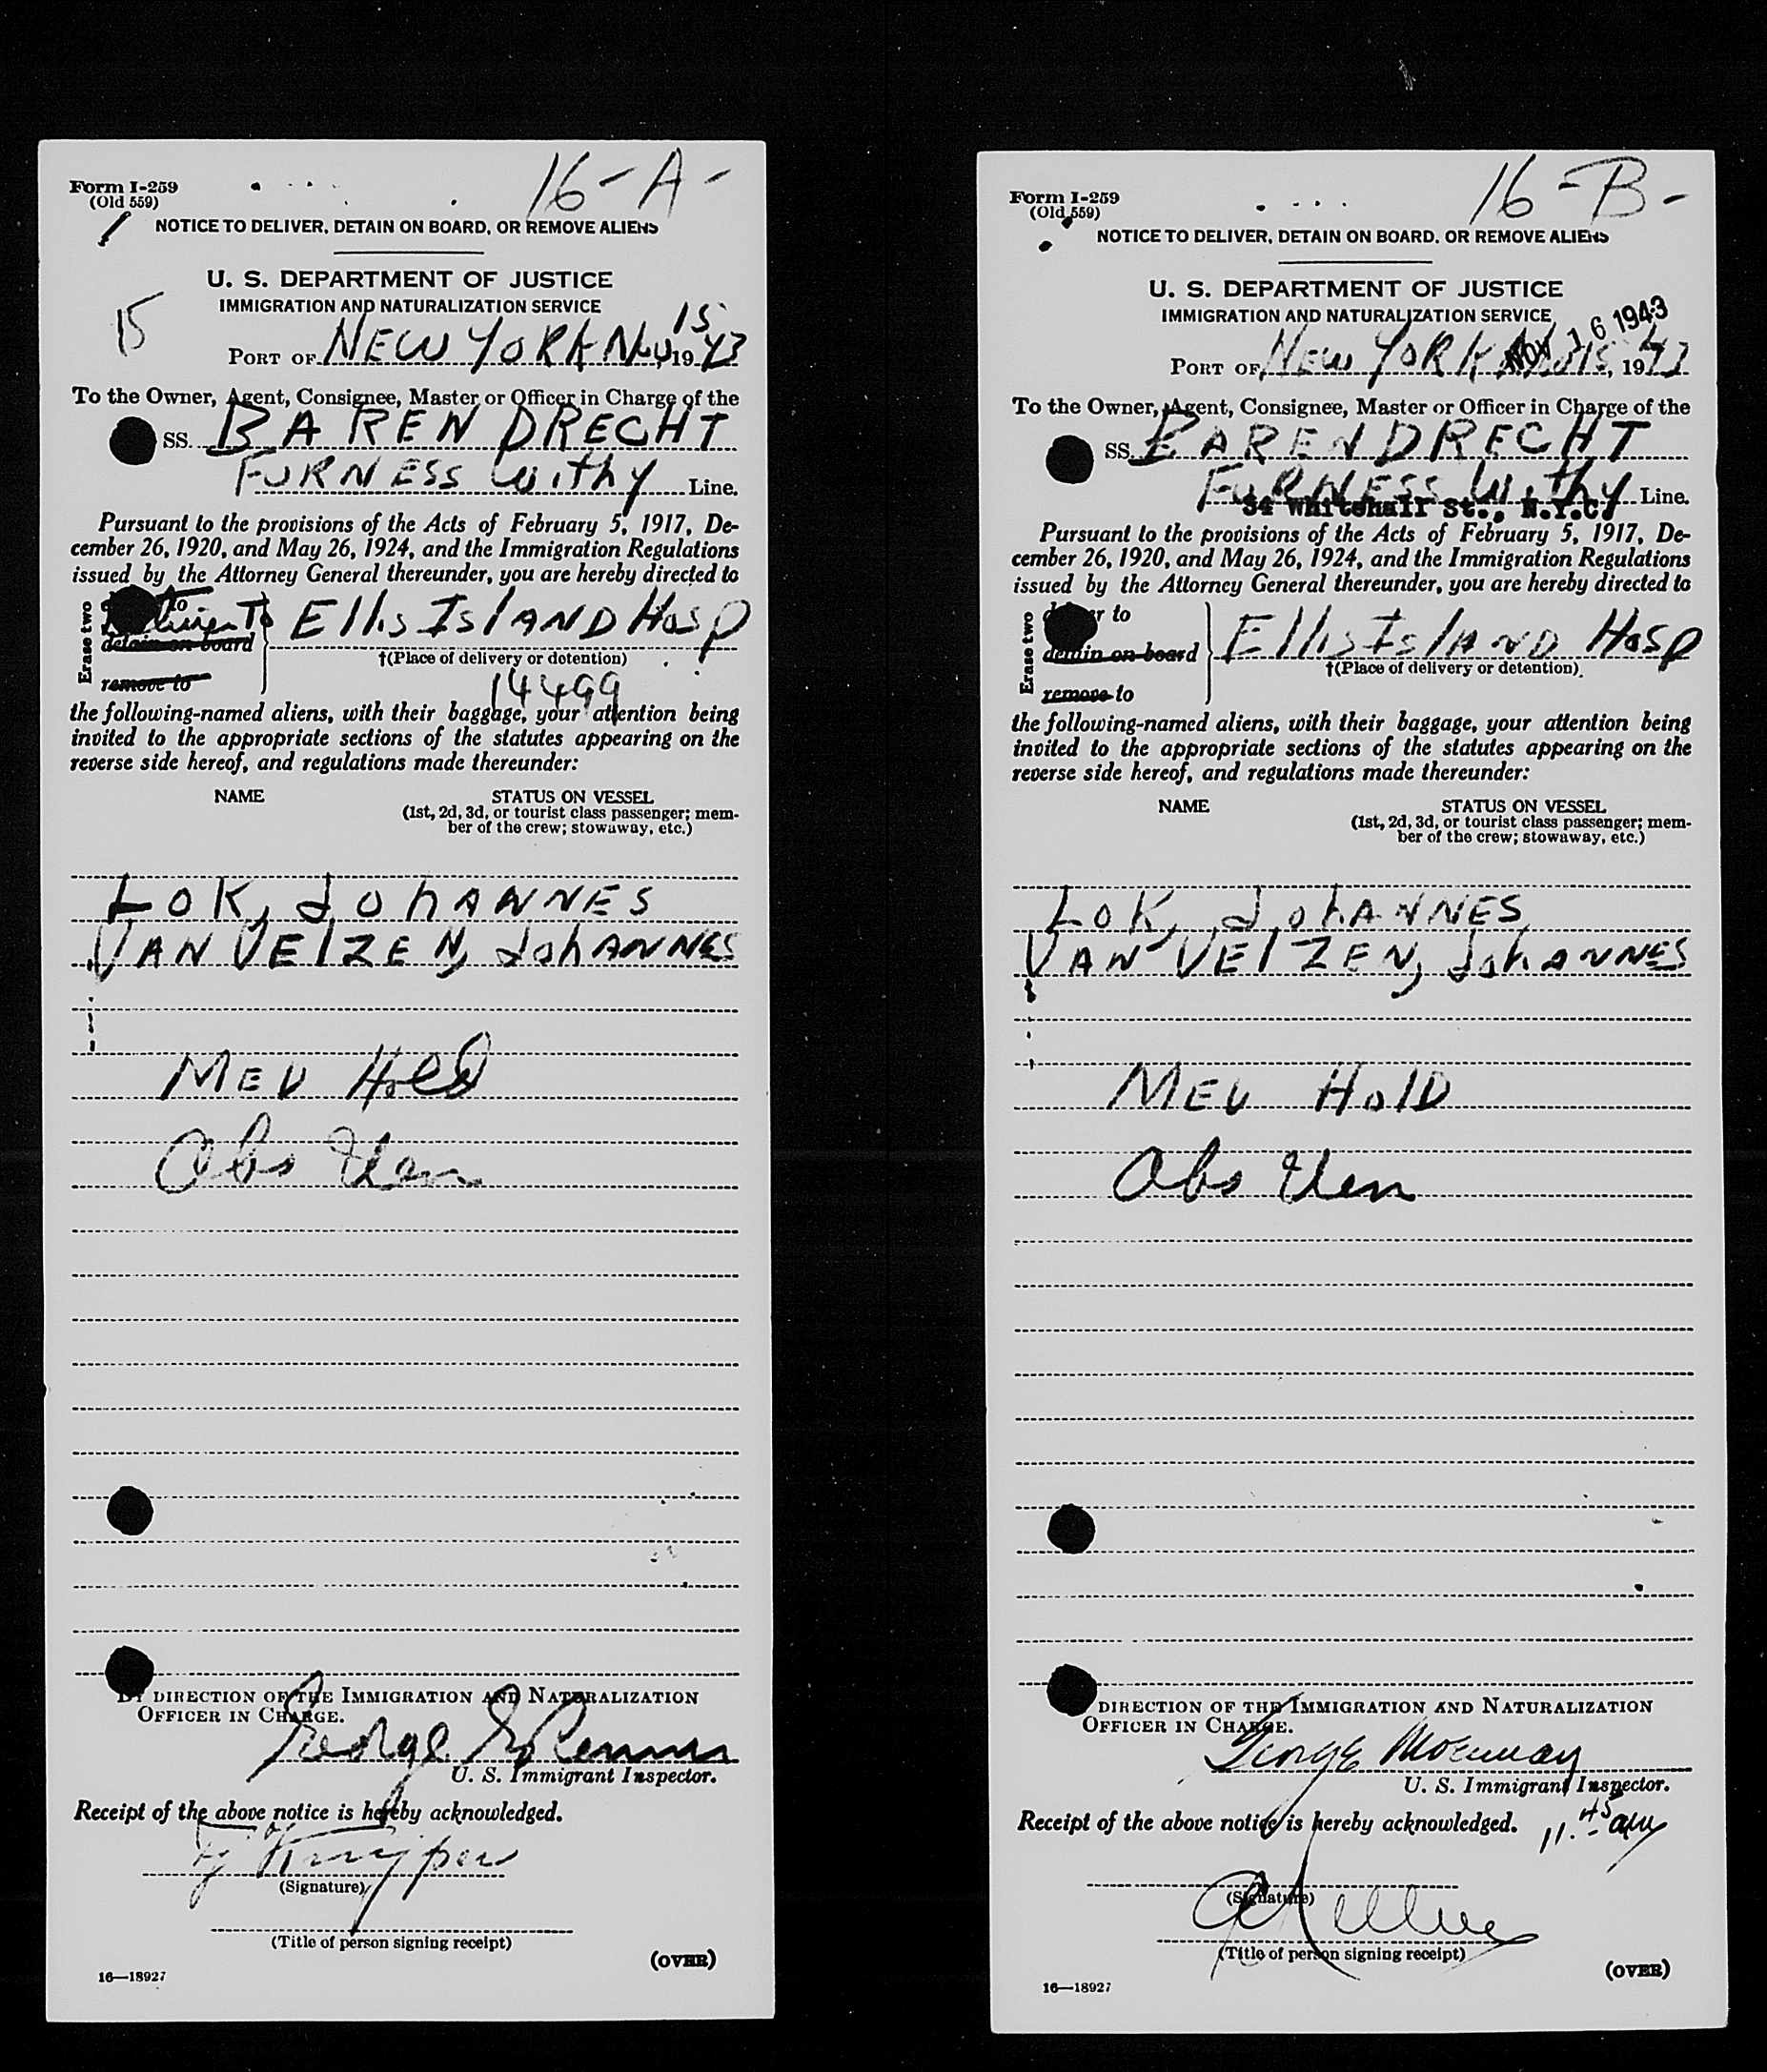 16-A-
Form I-259
(Old 559)
NOTICE TO DELIVER, DETAIN ON BOARD, OR REMOVE ALIENS
U. S. DEPARTMENT OF JUSTICE
IMMIGRATION AND NATURALIZATION SERVICE
15
PORT OF NEW YORK Nov 15, 1943
To the Owner, Agent, Consignee, Master or Officer in Charge of the
SS. BARENDRECHT
FURNESS Withy Line.
Pursuant to the provisions of the Acts of February 5, 1917, De-
cember 26, 1920, and May 26, 1924, and the Immigration Regulations
issued by the Attorney General thereunder, you are hereby directed to
Erase two
to
detain on board
remove to
Ellis IslAND Hosp
†(Place of delivery or detention)
14499
the following-named aliens, with their baggage, your attention being
invited to the appropriate sections of the statutes appearing on the
reverse side hereof, and regulations made thereunder:
NAME STATUS ON VESSEL
(1st, 2d, 3d, or tourist class passenger; mem-
ber of the crew; stowaway, etc.)
LOK, JOhANNES
VAN VElZEN, JohANNES
MED Hold
Obs Ven
BY DIRECTION OF THE IMMIGRATION AND NATURALIZATION
OFFICER IN CHARGE.
George
U. S. Immigrant Inspector.
Receipt of the above notice is hereby acknowledged.
Kruijper
(Signature)
(Title of person signing receipt)
16—18927
(OVER)
16-B-
Form I-259
(Old 559)
NOTICE TO DELIVER, DETAIN ON BOARD, OR REMOVE ALIENS
U. S. DEPARTMENT OF JUSTICE
IMMIGRATION AND NATURALIZATION SERVICE
NOV 16 1943
PORT OF NEW YORK Nov 15, 1943
To the Owner, Agent, Consignee, Master or Officer in Charge of the
SS. BARENDRECHT
FURNESS Withy Line.
34 Whitehall St., N.Y.C.
Pursuant to the provisions of the Acts of February 5, 1917, De-
cember 26, 1920, and May 26, 1924, and the Immigration Regulations
issued by the Attorney General thereunder, you are hereby directed to
Erase two
deliver to
detain on board
remove to
Ellis IslAND Hosp
†(Place of delivery or detention)
the following-named aliens, with their baggage, your attention being
invited to the appropriate sections of the statutes appearing on the
reverse side hereof, and regulations made thereunder:
NAME STATUS ON VESSEL
(1st, 2d, 3d, or tourist class passenger; mem-
ber of the crew; stowaway, etc.)
LOK, JohANNES
VAN VElZEN, JohANNES
MED HolD
Obs Ven
DIRECTION OF THE IMMIGRATION AND NATURALIZATION
OFFICER IN CHARGE.
George
U. S. Immigrant Inspector.
Receipt of the above notice is hereby acknowledged. 11.45 am
(Signature)
(Title of person signing receipt)
16—18927
(OVER)